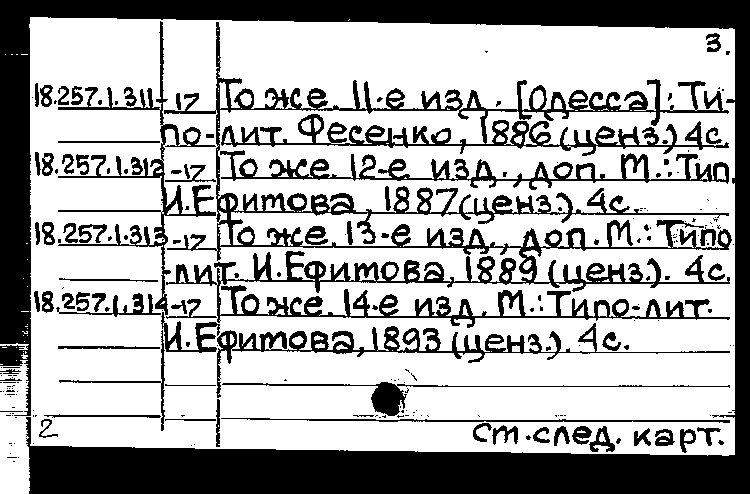 3.
18.257.1.311-17 То же. 11-е изд. [Одесса]: Ти-
по-лит. Фесенко, 1886 (ценз.) 4с.
18.257.1.312-17 То же. 12-е изд., доп. М.: Тип.
И. Ефитова, 1887 (ценз.). 4с.
18.257.1.313-17 То же. 13-е изд., доп. М.: Типо
-лит. И. Ефитова, 1889 (ценз.). 4с.
18.257.1.314-17 То же. 14-е изд. М.: Типо-лит.
И. Ефитова, 1893 (ценз.). 4с.
2 ст. след. карт.